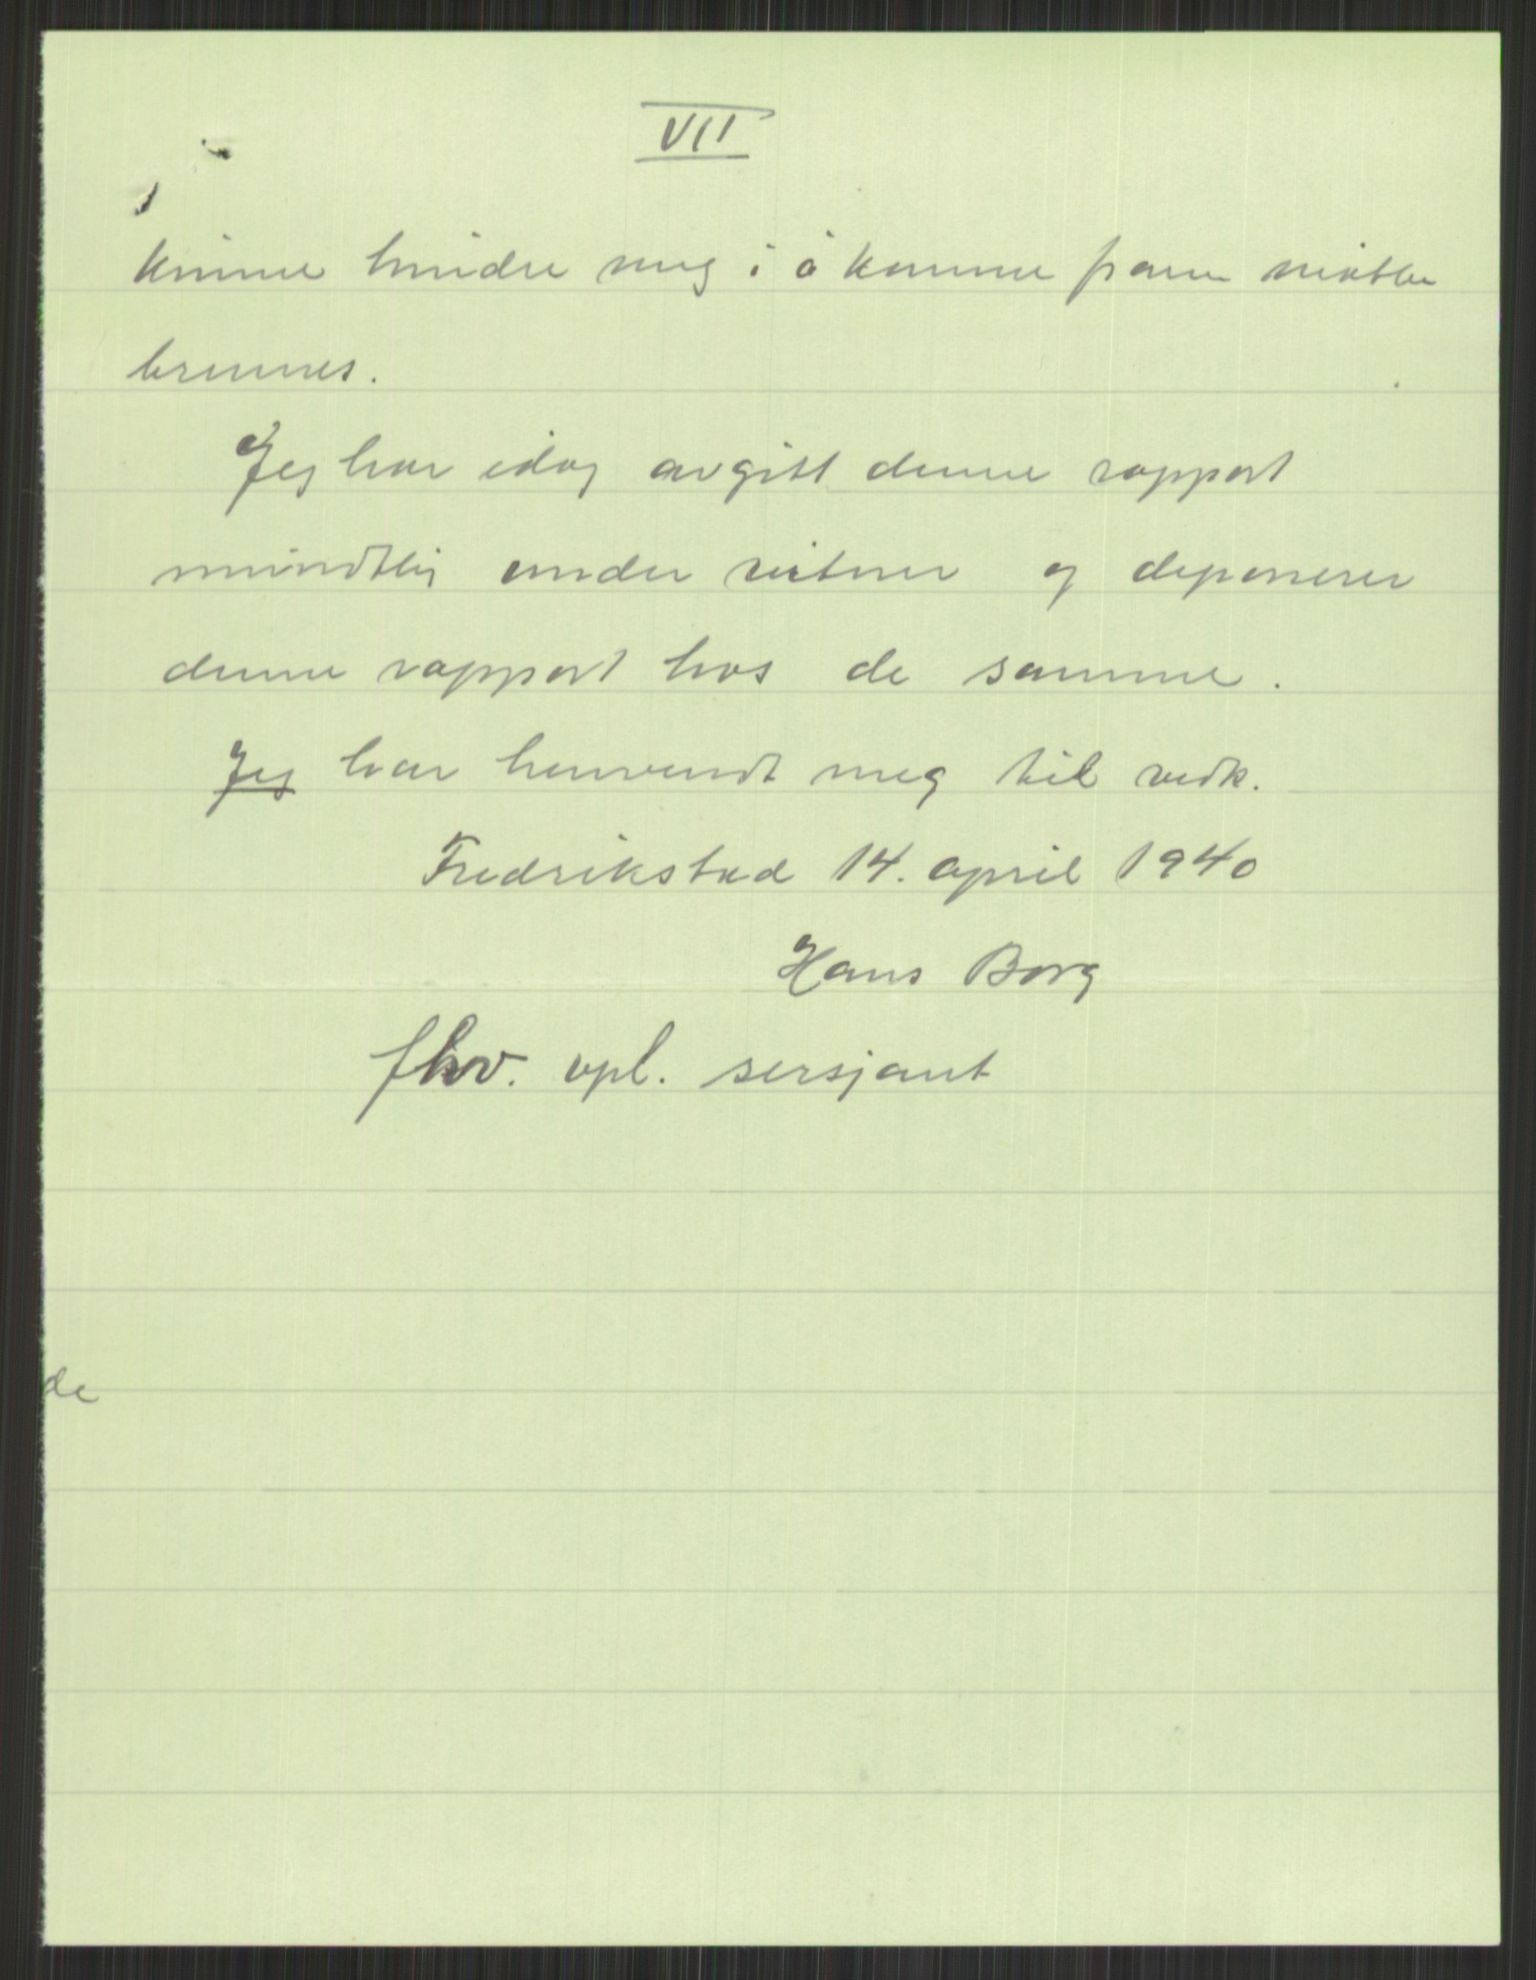 VII
kunne hindre meg i å komme fram måtte
brennes.
Jeg har idag avgitt denne rapport
muindtlig under vitner og deponerer
denne rapport hos de samme.
Jeg har henvendt meg til vedk.
Fredrikstad 14. april 1940
Hans Borg
fhv. vpl. sersjant
de